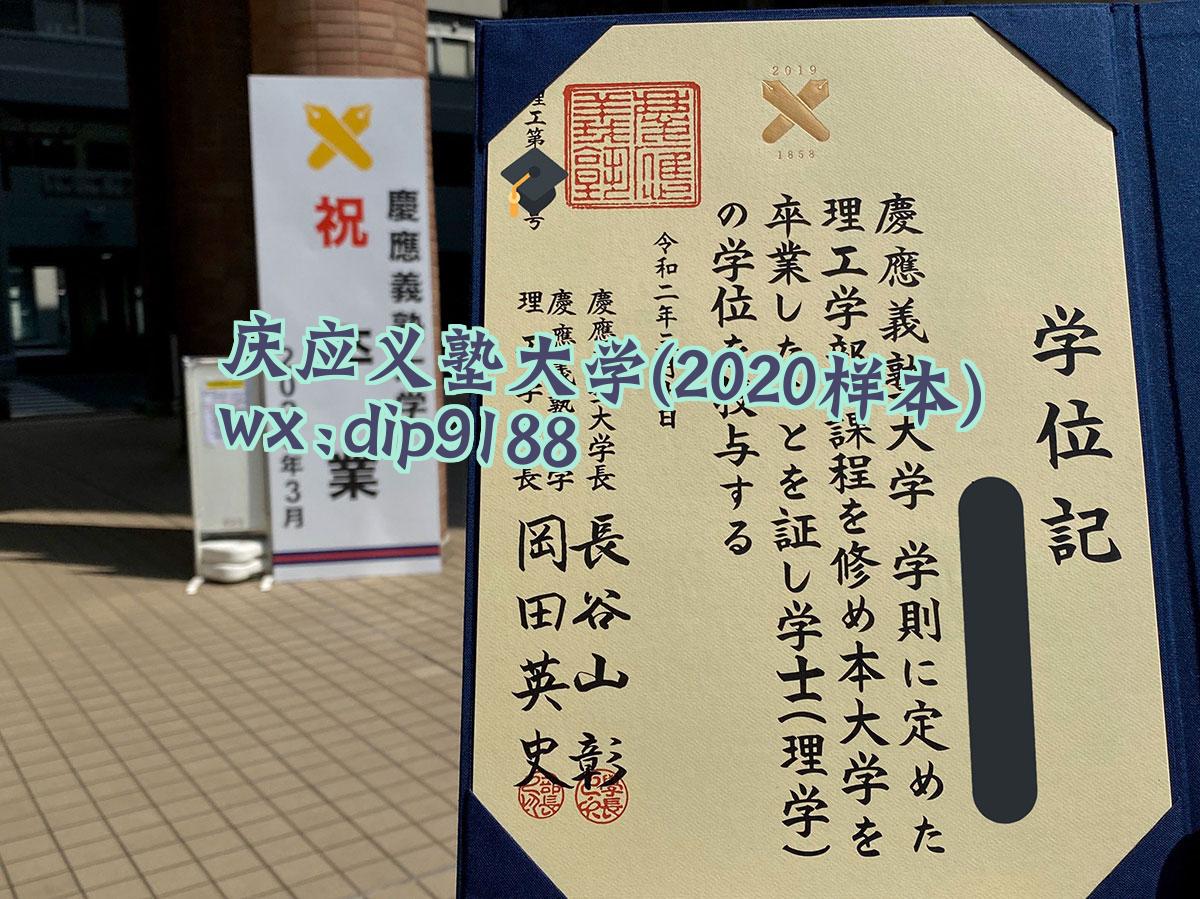 庆应义塾大学(2020样本)
wx:dip9188
慶應義塾
祝
業
年3月
2019
1858
学位記
慶應義塾大学 学則に定めた
理工学部 課程を修め本大学を
卒業した とを証し学士(理学)
の学位を 与する
令和二年 月 日
慶應 大学長 長谷山彰
慶應義塾 学
理工学 長 岡田英史
理工第
号
慶應義塾
学長
部長